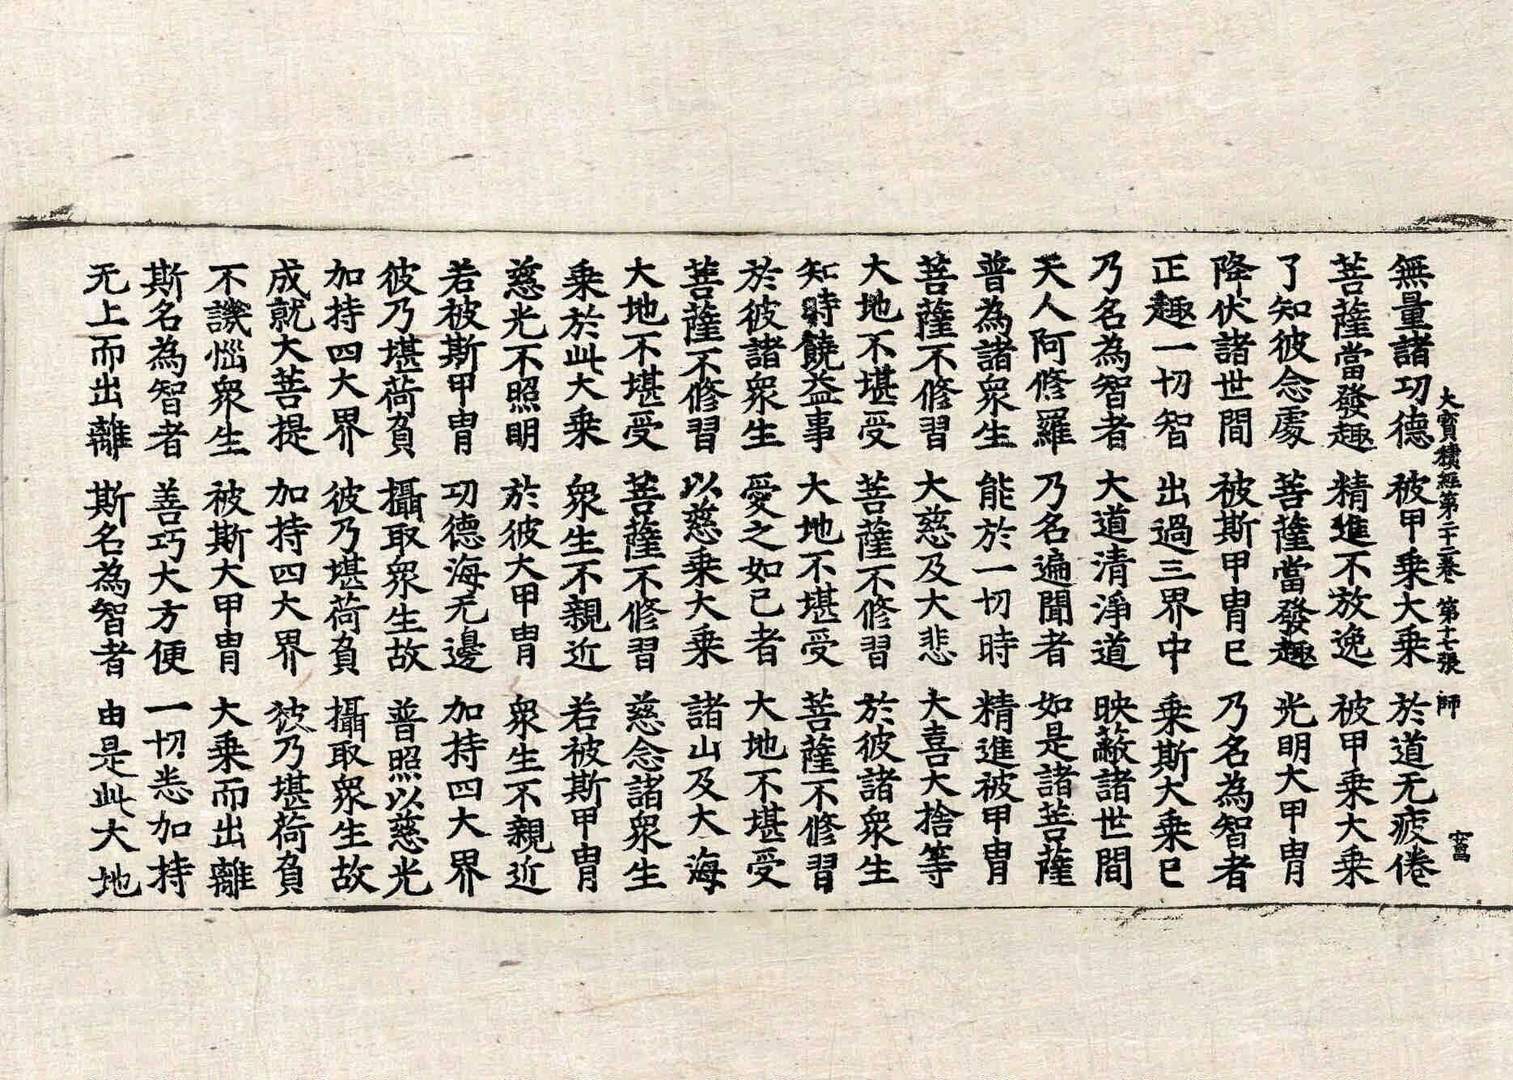 大寶積經第二十二卷 第十七張 師
無量諸功德 被甲乘大乘 於道无疲倦
菩薩當發趣 精進不放逸 被甲乘大乘
了知彼念處 菩薩當發趣 光明大甲冑
降伏諸世間 被斯甲冑已 乃名為智者
正趣一切智 出過三界中 乘斯大乘已
乃名為智者 大道清淨道 映蔽諸世間
天人阿修羅 乃名遍聞者 如是諸菩薩
普為諸衆生 能於一切時 精進被甲冑
菩薩不修習 大慈及大悲 大喜大捨等
大地不堪受 菩薩不修習 於彼諸衆生
知時饒益事 大地不堪受 菩薩不修習
於彼諸衆生 愛之如己者 大地不堪受
菩薩不修習 以慈乘大乘 諸山及大海
大地不堪受 菩薩不修習 慈念諸衆生
乘於此大乘 衆生不親近 若被斯甲冑
慈光不照明 於彼大甲冑 衆生不親近
若被斯甲冑 功德海无邊 加持四大界
彼乃堪荷負 攝取衆生故 普照以慈光
加持四大界 彼乃堪荷負 攝取衆生故
成就大菩提 加持四大界 彼乃堪荷負
不譏惱衆生 被斯大甲冑 大乘而出離
斯名為智者 善巧大方便 一切悉加持
无上而出離 斯名為智者 由是此大地